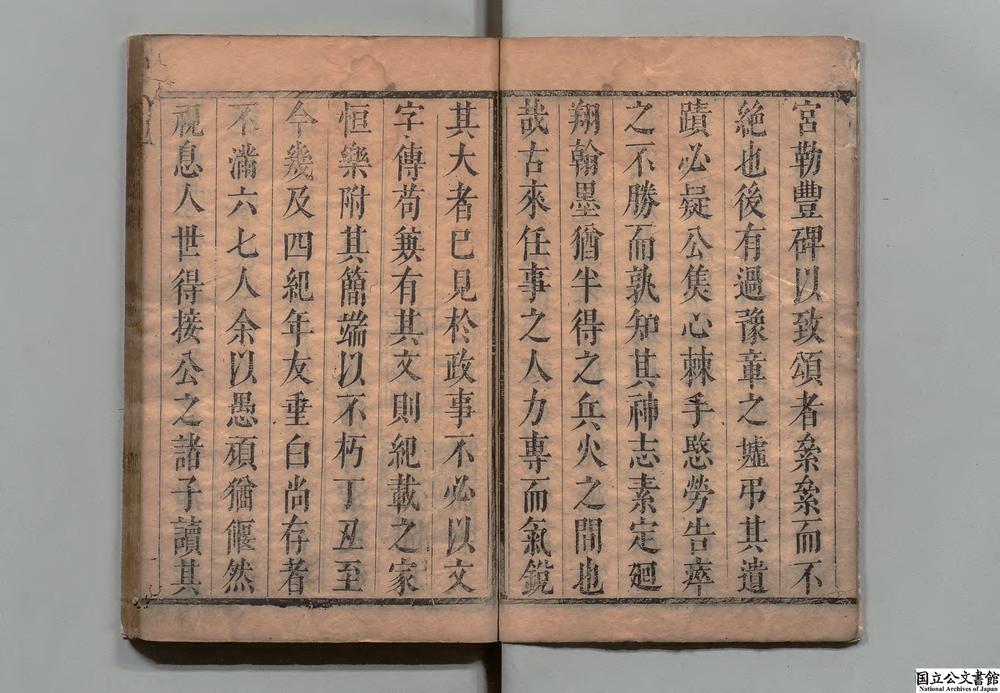 宮勒豐碑以致頌者纍纍而不
絕也後有過豫章之墟弔其遺
蹟必疑公焦心棘手愍勞告瘁
之不勝而孰知其神志素定廻
翔翰墨猶半得之兵火之間也
哉古來任事之人力專而氣銳
其大者已見於政事不必以文
字傳苟兼有其文則紀載之家
恒樂附其簡端以不朽丁丑至
今幾及四紀年友垂白尚存者
不滿六七人余以愚頑猶偃然
視息人世得接公之諸子讀其
国立公文書館
National Archives of Japan